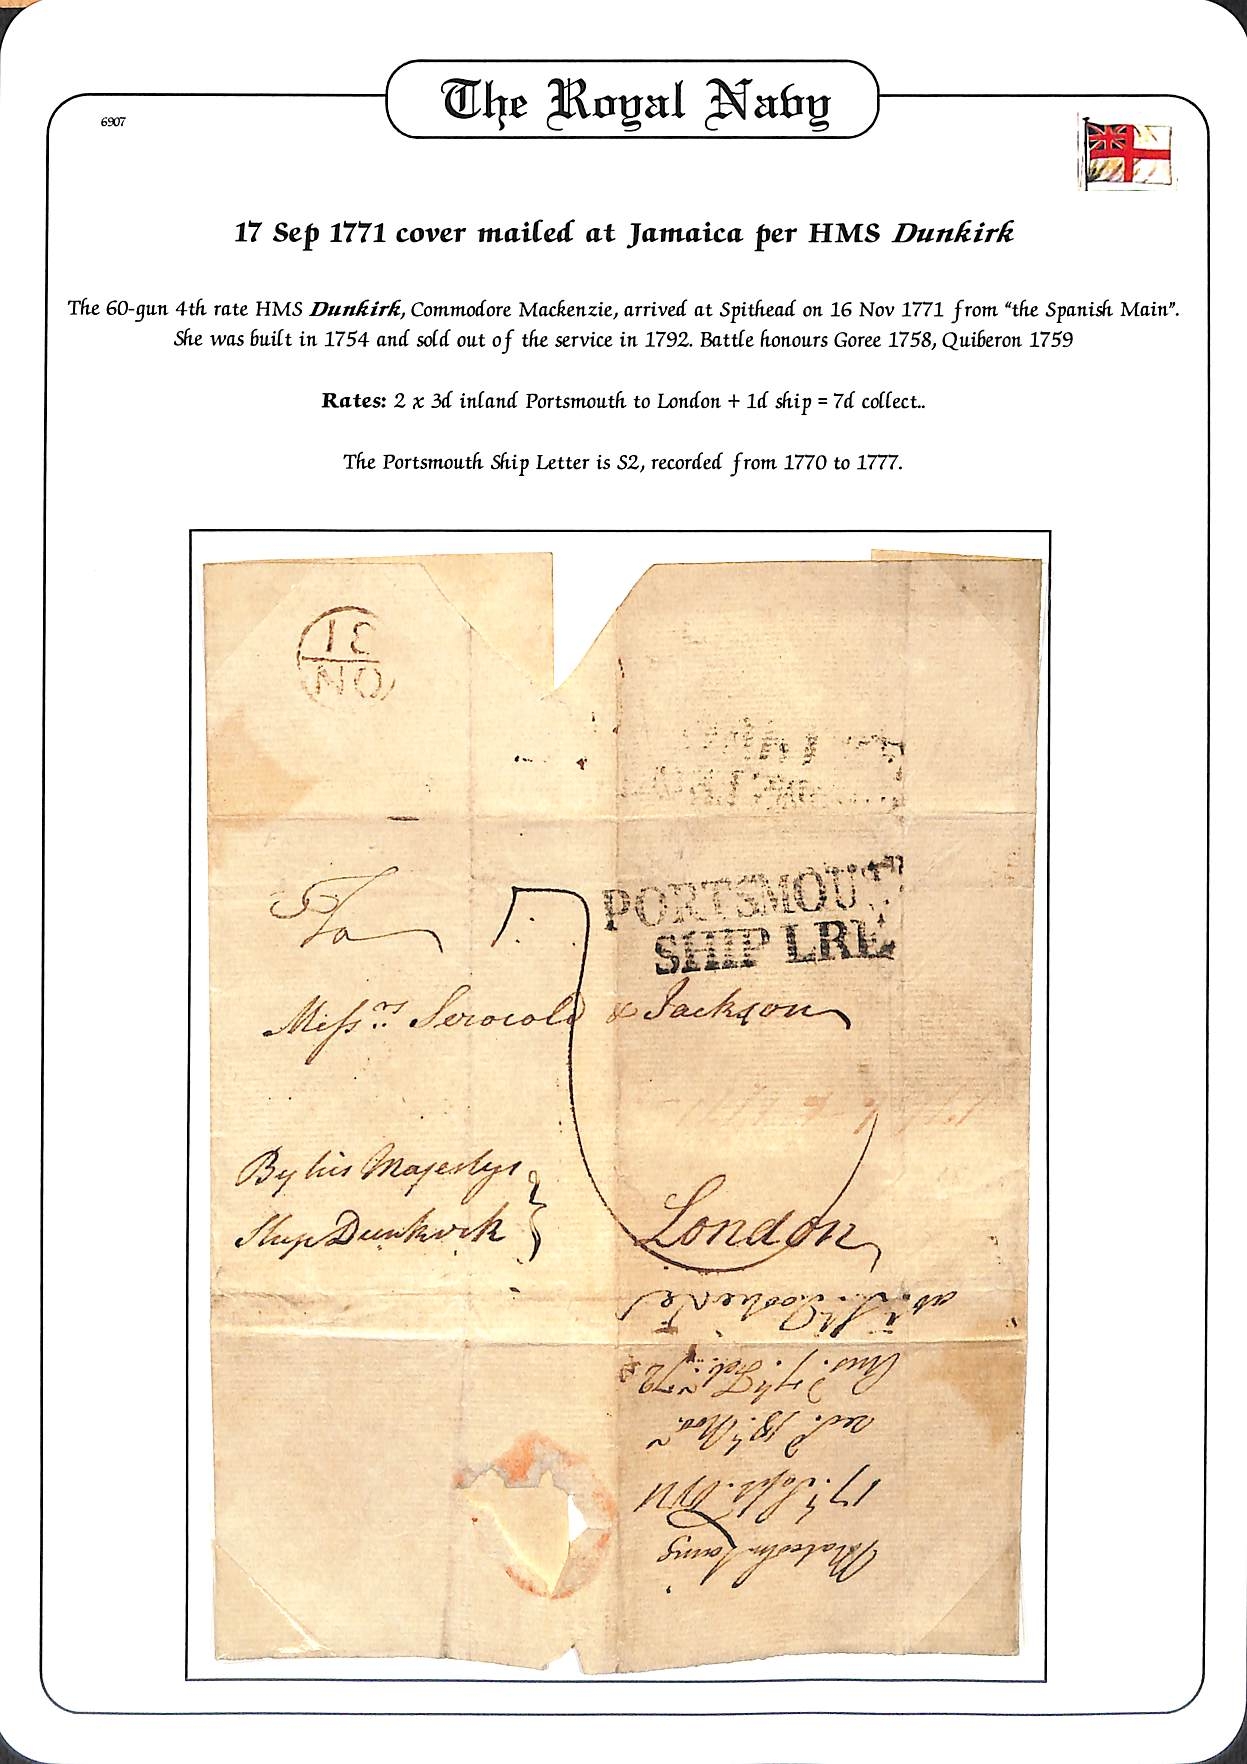 The Royal Navy
6907
17 Sep 1771 cover mailed at Jamaica per HMS Dunkirk
The 60-gun 4th rate HMS Dunkirk, Commodore Mackenzie, arrived at Spithead on 16 Nov 1771 from “the Spanish Main”.
She was built in 1754 and sold out of the service in 1792. Battle honours Goree 1758, Quiberon 1759
Rates: 2 x 3d inland Portsmouth to London + 1d ship = 7d collect..
The Portsmouth Ship Letter is S2, recorded from 1770 to 1777.
NO
To
7
PORTSMOUTH
SHIP LRE
Messrs. & Jackson
By his Majestys
Ship Dunkirk
London
Malcolm Laing
17th Sept. 1771
recd. 18th Nov.